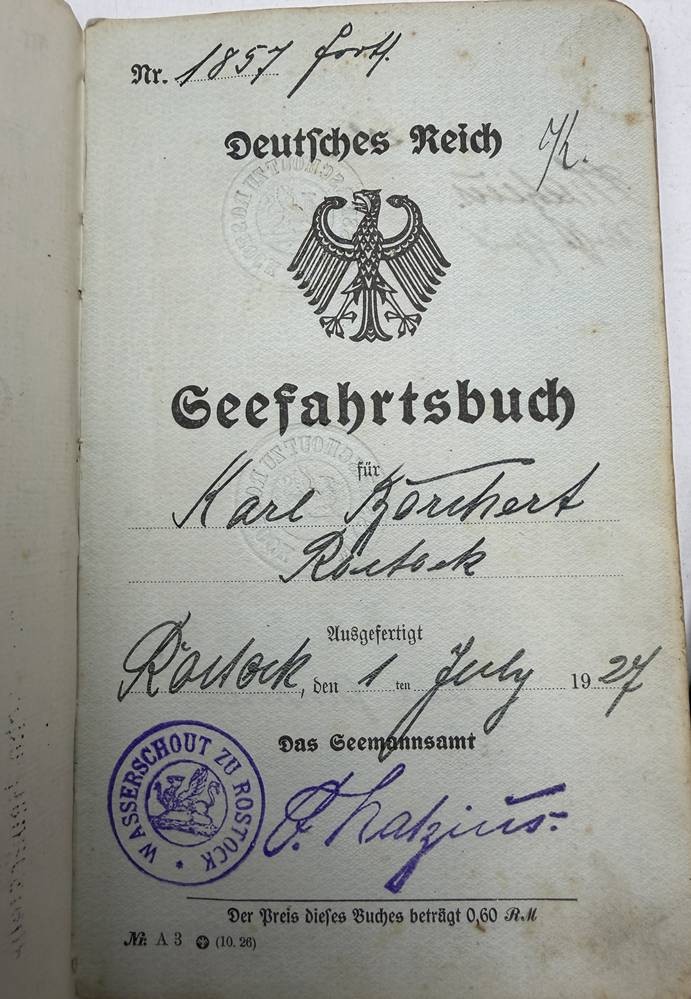 Nr. 1857 fortl.
Deutsches Reich
Seefahrtsbuch
für
Karl Borchert
Rostock
Ausgefertigt
Rostock, den 1 ten July 1927
Das Seemannsamt
WASSERSCHOUT ZU ROSTOCK *
Der Preis dieses Buches beträgt 0,60 RM
Nr. A 3 (10. 26)